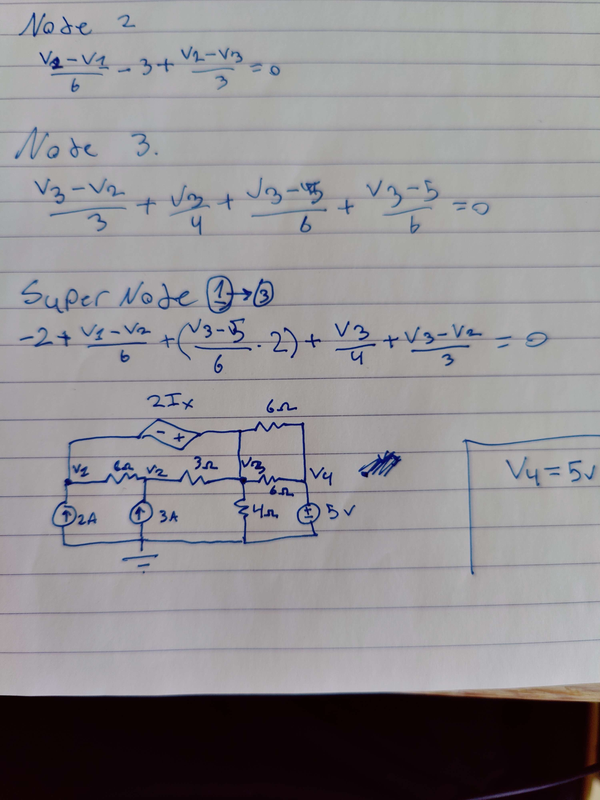 Node 2
(V2-V1)/6 - 3 + (V2-V3)/3 = 0
Node 3.
(V3-V2)/3 + V3/4 + (V3-5)/6 + (V3-5)/6 = 0
Super Node ① → ③
-2 + (V1-V2)/6 + ((V3-5)/6 · 2) + V3/4 + (V3-V2)/3 = 0
2Ix
6Ω
- +
V1 6Ω V2 3Ω V3 6Ω V4
2A 3A 4Ω 5V
V4 = 5V